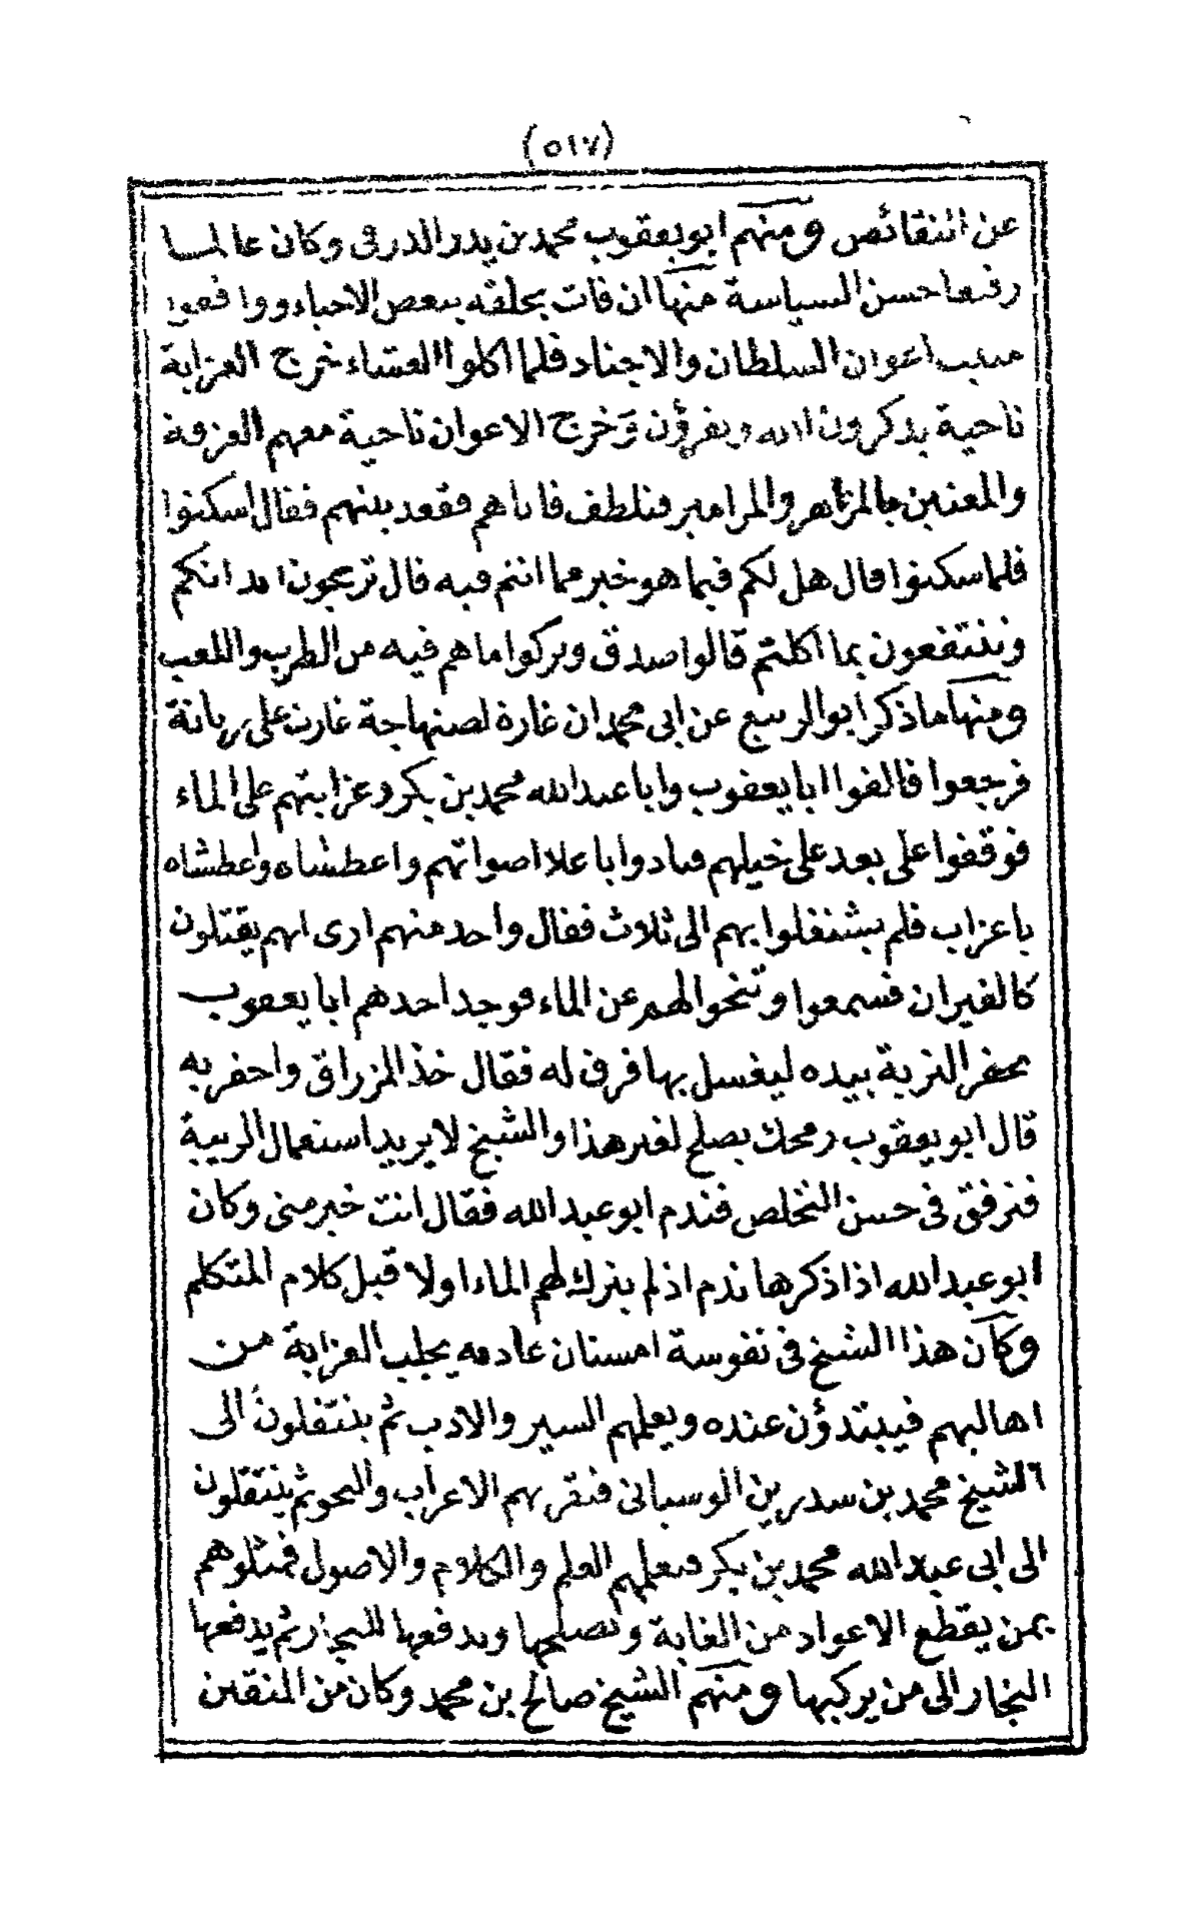 (٥١٧)
عن النقائص ومنهم ابويعقوب محمد بن يدر الدرفى وكان عالما
رفيعا حسن السياسة منها ان فات بحلقه ببعض الاحياء ووافقوا
اعوان السلطان والاجناد فلما اكلوا العشاء خرج العزابة
ناحية يذكرون الله ويقرؤن وخرج الاعوان ناحية معهم
والمغنين بالمزاهر والمزامير فتلطف فاتاهم فقعد بينهم فقال اسكنوا
فلما سكنوا قال هل لكم فيما هو خير مما انتم فيه قال ترحمون ابدانكم
وتنتفعون بما اكلتم قالوا صدق وتركوا ما هم فيه من الطرب واللعب
ومنها ما ذكر ابوالربيع عن ابى محمد ان غارة لصنهاجة غارت على ريانة
فرجعوا فالفوا ابايعقوب وابا عبدالله محمد بن بكر وعزابتهم على الماء
فوقفوا على بعد على خيلهم فنادوا باعلا اصواتهم واعطشاه واعطشاه
ياعزاب فلم يشتغلوا بهم الى ثلاث فقال واحد منهم ارى انهم يقتلون
كالفيران فسمعوا وتنحوا لهم عن الماء فوجد احدهم ابا يعقوب
يحفر التربة بيده ليغسل بها فرق له فقال خذ المزراق واحفر به
قال ابو يعقوب رمحك يصلح لغير هذا والشيخ لا يريد استعمال الريبة
فترفق فى حسن التخلص فندم ابو عبد الله فقال انت خير منى وكان
ابو عبد الله اذا ذكرها ندم اذ لم يترك لهم الماء اولا قبل كلام المتكلم
وكان هذا الشيخ فى نفوسة امسنان عادته يجلب العزابة من
اهاليهم فيبتدؤن عنده ويعلمهم السير والادب ثم ينتقلون الى
الشيخ محمد بن سدرين الوسيانى فتقريهم الاعراب والنحو ثم ينتقلون
الى ابى عبد الله محمد بن بكر فيعلمهم العلم والكلام والاصول فمثلوهم
بمن يقطع الاعواد من الغابة وتصليحها ويدفعها للنجار ثم يدفعها
النجار الى من يركبها ومنهم الشيخ صالح بن محمد وكان من المتقين